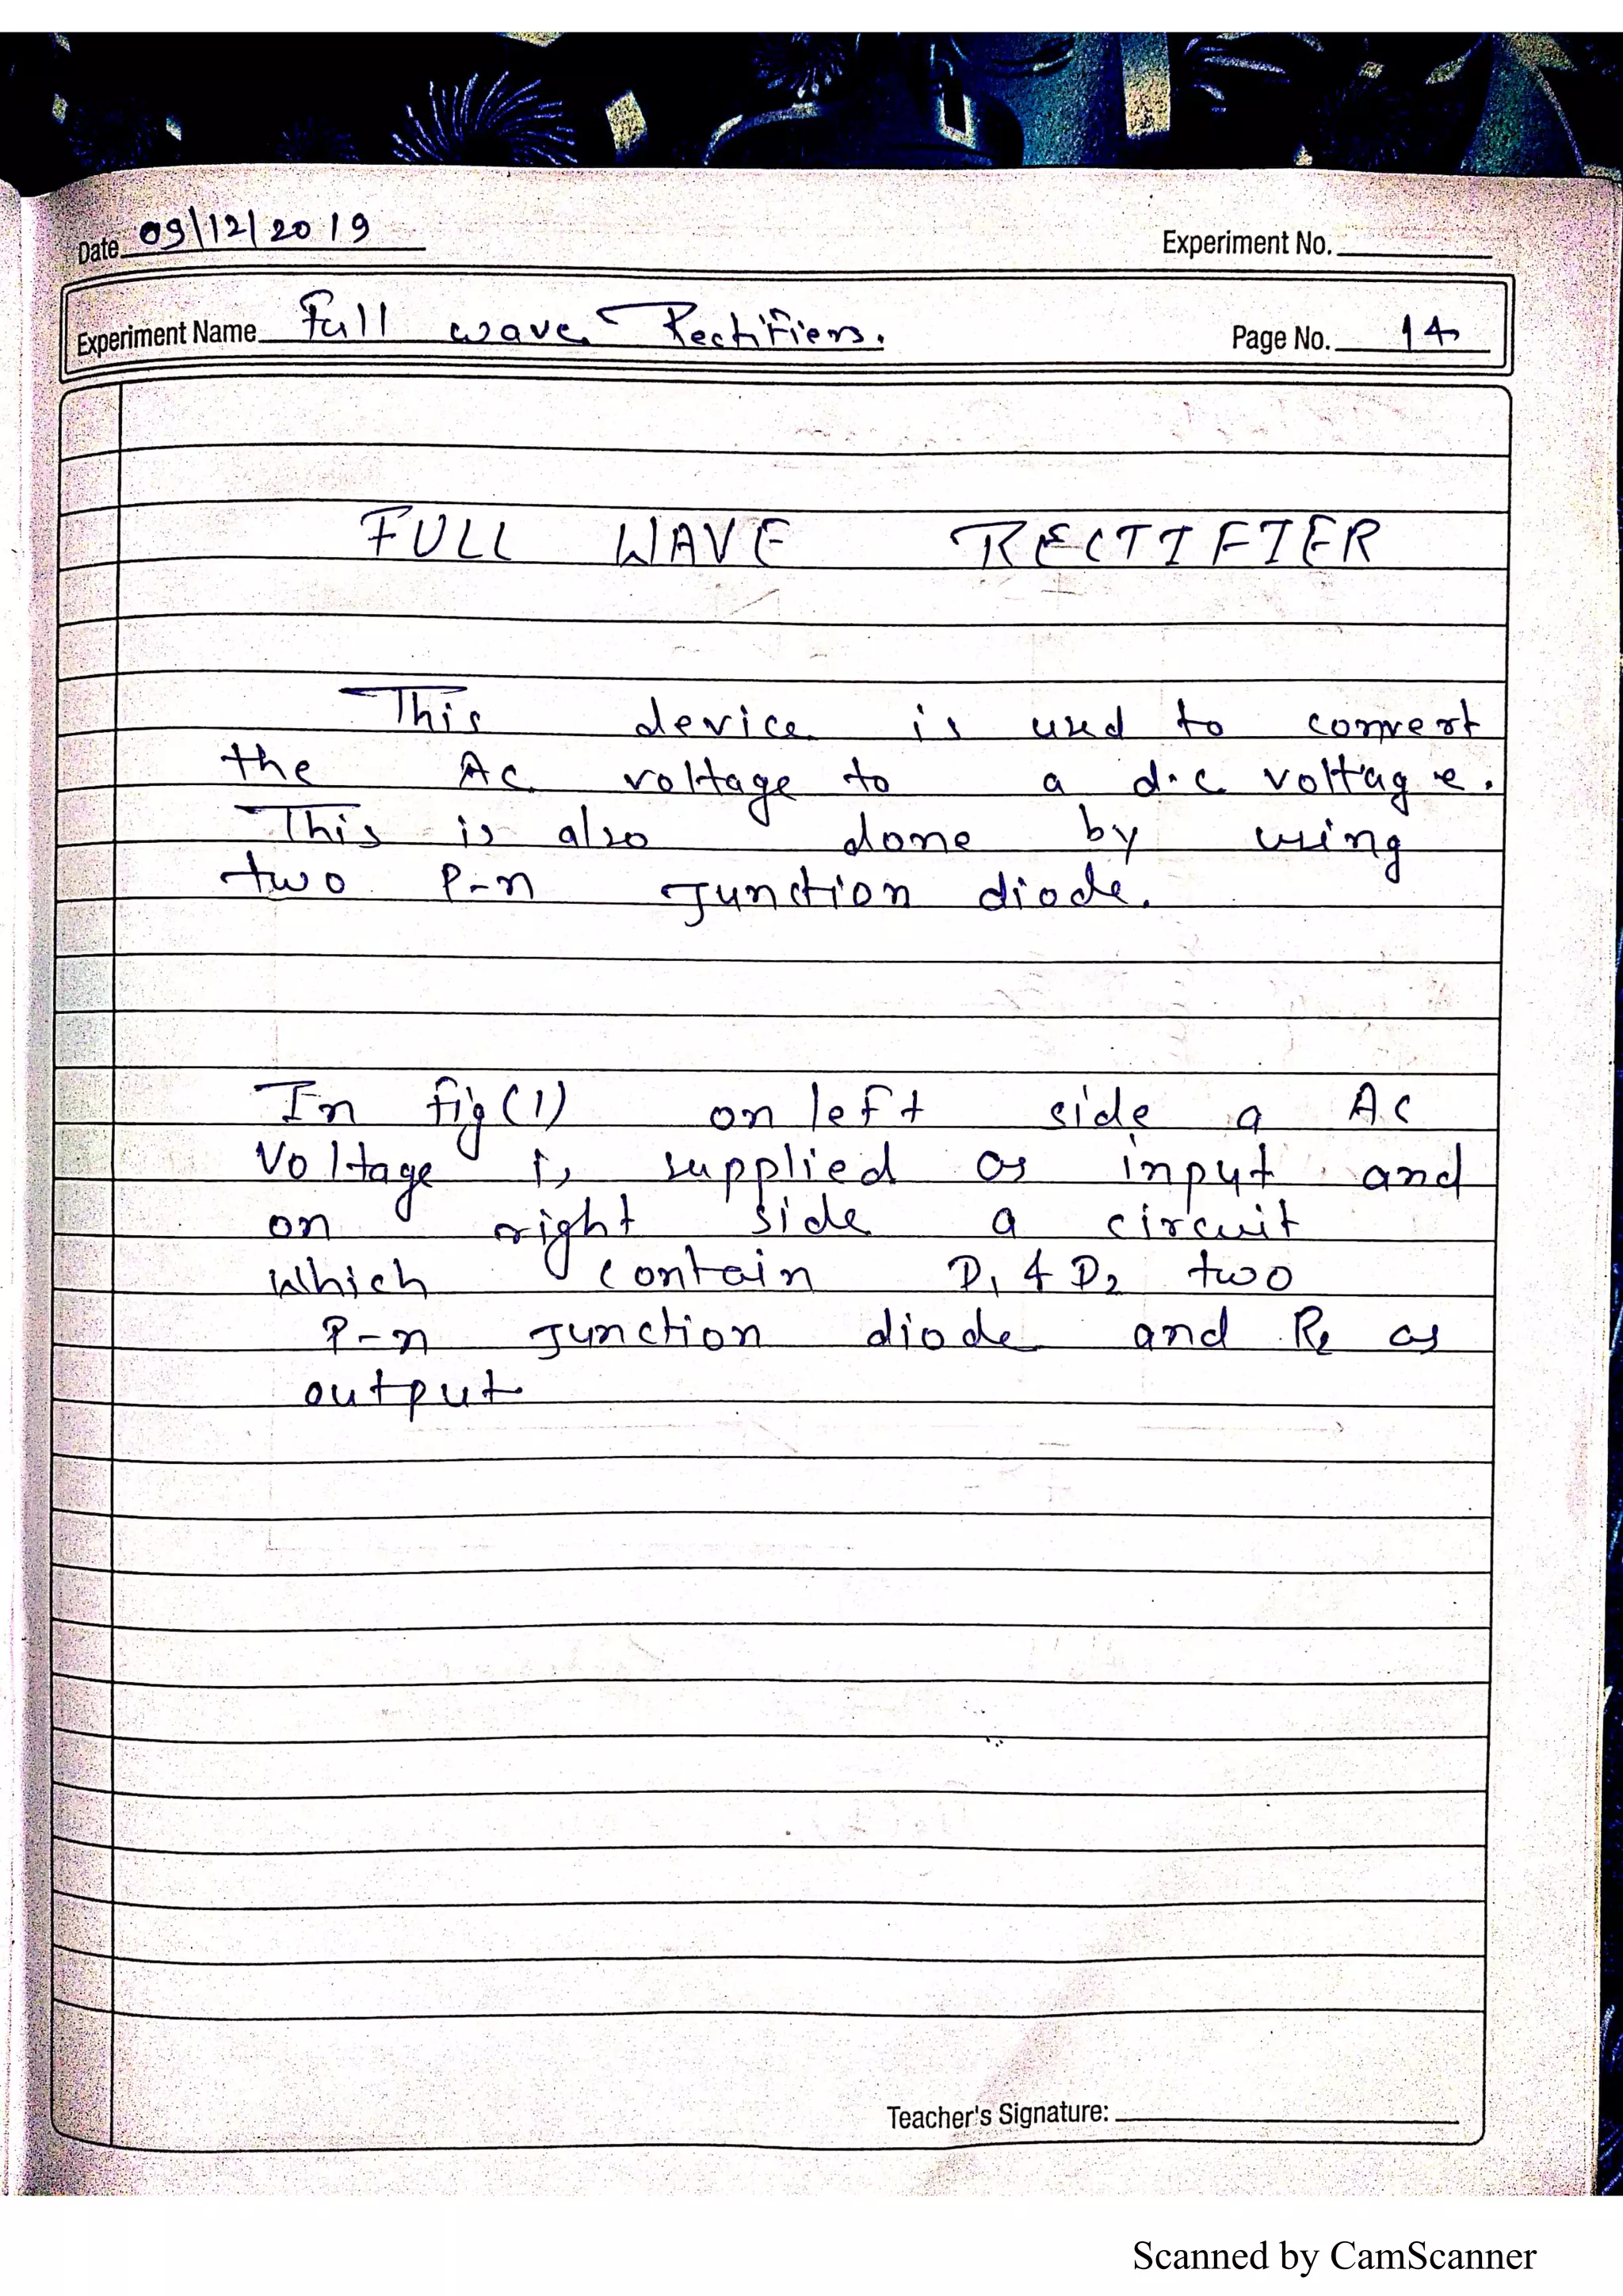 Date 09/12/2019
Experiment No.
Experiment Name Full wave Rectifiers.
Page No. 14
FULL WAVE RECTIFIER
This device is used to convert
the AC voltage to a d.c voltage.
This is also done by using
two P-n Junction diode.
In fig(1) on left side a AC
Voltage is supplied as input and
on right side a circuit
which contain D₁ & D₂ two
P-n Junction diode and R₂ as
output
Teacher's Signature:
Scanned by CamScanner